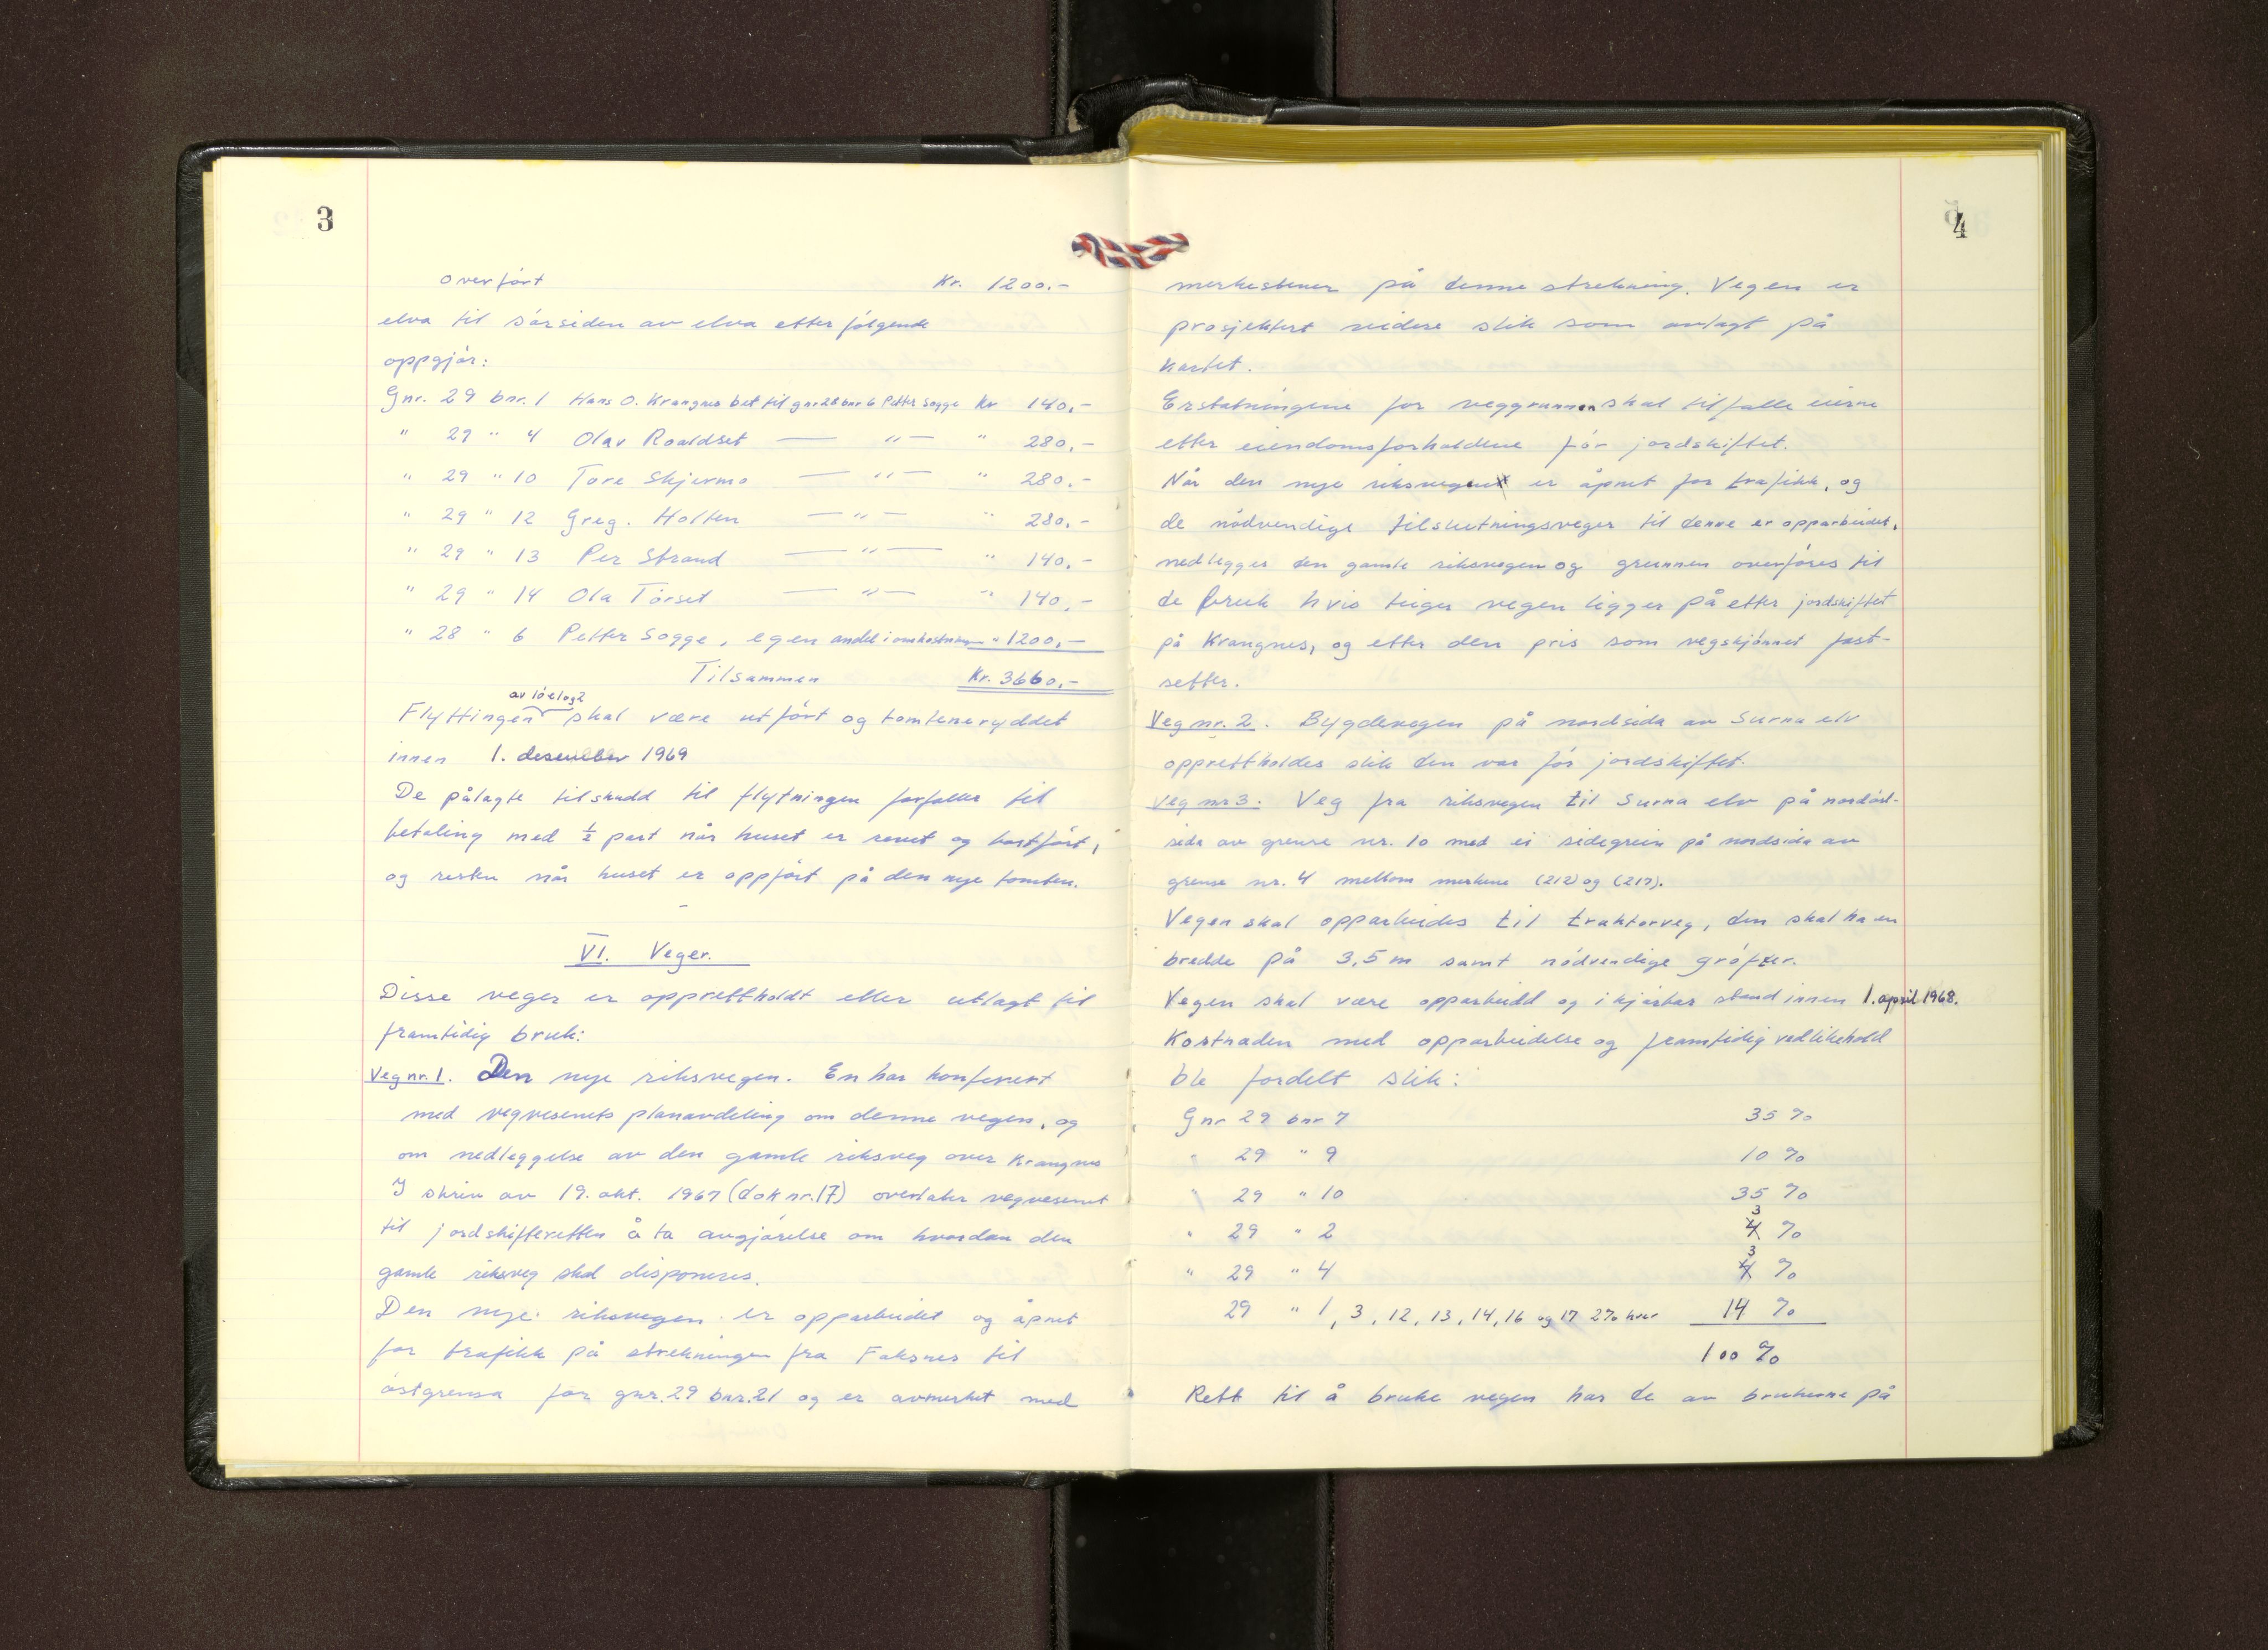 3
overført Kr. 1200.-
elva til sørsiden av elva etter følgende
oppgjør:
Gnr. 29 bnr. 1 Hans O. Krangnes bet til gnr 28 bnr 6 Petter Sogge Kr 140,-
" 29 " 4 Olav Roaldset — " — " 280,-
" 29 " 10 Tore Skjermo — " — " 280.-
" 29 " 12 Greg. Holten — " — " 280,-
" 29 " 13 Per Strand — " — " 140,-
" 29 " 14 Ola Tørset — " — " 140,-
" 28 " 6 Petter Sogge, egen andel i omkostningen " 1200,-
Tilsammen Kr. 3660,-
av löe 1 og 2
Flyttingen skal være utført og tomtene ryddet
innen 1. desember 1969
De pålagte tilskudd til flytningen forfaller til
betaling med ½ part når huset er revet og bortført,
og resten når huset er oppført på den nye tomten.
VI. Veger.
Disse veger er opprettholdt eller utlagt til
framtidig bruk:
Veg nr. 1. Den nye riksvegen. En har konferert
med vegvesenets planavdeling om denne vegen, og
om nedleggelse av den gamle riksveg over Krangnes
I skriv av 19. okt. 1967 (dok nr. 17) overlater vegvesenet
til jordskifteretten å ta avgjørelse om hvordan den
gamle riksveg skal disponeres.
Den nye riksvegen er opparbeidet og åpnet
for trafikk på strekningen fra Faksnes til
østgrensa for gnr. 29 bnr. 21 og er avmerket med
4
merkestener på denne strekning. Vegen er
prosjektert videre slik som avlagt på
kartet.
Erstatningene for veggrunnen skal tilfalle eierne
etter eiendomsforholdene før jordskiftet.
Når den nye riksvegen er åpnet for trafikk, og
de nødvendige tilslutningsveger til denne er opparbeidet,
nedlegges den gamle riksvegen og grunnen overføres til
de bruk hvis teiger vegen ligger på etter jordskiftet
på Krangnes, og etter den pris som vegskjønnet fast-
setter.
Veg nr. 2. Bygdevegen på nordsida av Surna elv
opprettholdes slik den var før jordskiftet.
Veg nr 3. Veg fra riksvegen til Surna elv på nordøst-
sida av grense nr. 10 med ei sidegrein på nordsida av
grense nr. 4 mellom merkene (212) og (217).
Vegen skal opparbeides til traktorveg, den skal ha en
bredde på 3,5 m samt nødvendige grøfter.
Vegen skal være opparbeidd og i kjørbar stand innen 1. april 1968.
Kostnaden med opparbeidelse og framtidig vedlikehold
ble fordelt slik:
Gnr 29 bnr 7 35 %
" 29 " 9 10 %
" 29 " 10 35 %
" 29 " 2 4 3 %
" 29 " 4 4 3 %
29 " 1, 3, 12, 13, 14, 16 og 17 2% hver 14 %
100 %
Rett til å bruke vegen har de av brukerne på